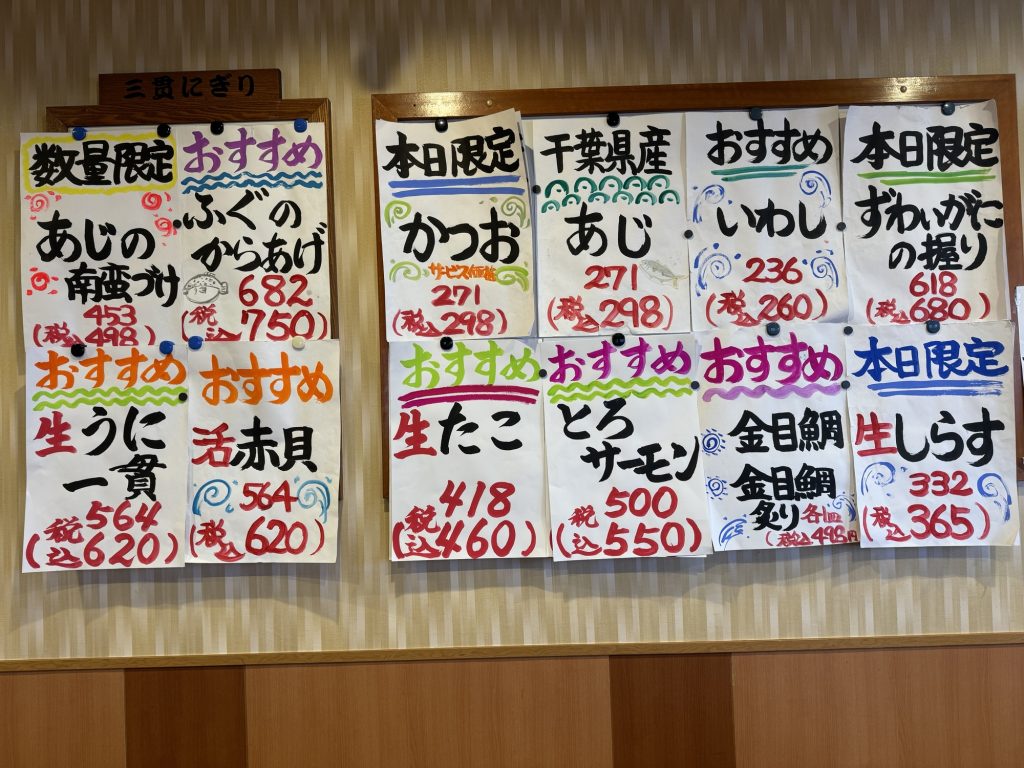 三貫にぎり
数量限定
あじの
南蛮づけ
453
(税込498)
おすすめ
ふぐの
からあげ
682
(税込750)
おすすめ
生うに
一貫
564
(税込620)
おすすめ
活赤貝
564
(税込620)
本日限定
かつお
サービス価格
271
(税込298)
千葉県産
あじ
271
(税込298)
おすすめ
いわし
236
(税込260)
本日限定
ずわいがに
の握り
618
(税込680)
おすすめ
生たこ
418
(税込460)
おすすめ
とろ
サーモン
500
(税込550)
おすすめ
金目鯛
金目鯛
炙り 各一皿
(税込495円)
本日限定
生しらす
332
(税込365)